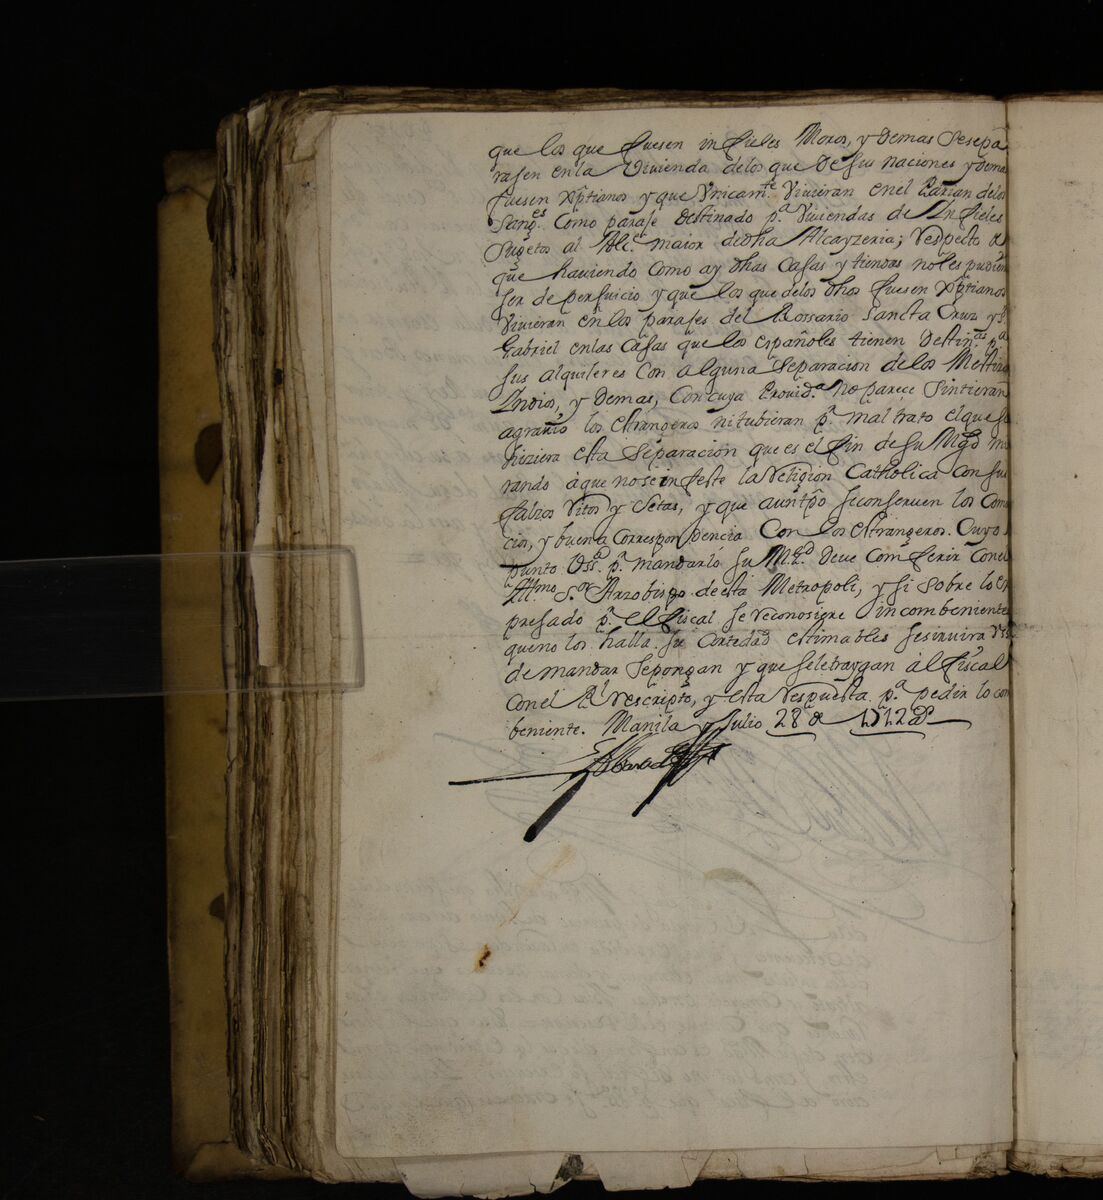 que los que fuesen infieles Moros, y Demas Sesepa
rasen enla Vivienda delos que De sus naciones y dema
fuesen Xp̃tianos y que Vnicam.te Vivieran enel Parian delos
Sang.es Como paraje Destinado p.a Viviendas de Infieles
Sugetos al Alc.e maior dedha Alcayzeria; Respecto de
que haviendo Como ay dhas Casas y tiendas noles pudiera
ser de perjuicio y que los que delos dhos fuesen Xp̃tianos
Vivieran en los parajes del Rossario Sancta Cruz y S.
Gabriel enlas Casas que los españoles tienen Destin.as p.a
sus alquileres Con alguna Separacion delos Mestizos
Indios, y Demas, Con cuya Provid.a no parece Sintieran
agravio los estrangeros ni tubieran p.r mal trato el que se
hiziera esta Separacion que es el fin de su Mg.d mi
rando à que no se infeste la Religion Catholica Con sus
falzos Ritos y Setas, y que aun tp̃o se conserven los Come
cios, y buena Correspondencia Con los estrangeros. Cuyo
punto Vss.a p.a mandarlo su M.d Deve Comferir Conel
Ill.mo S.or Arzobispo de esta Metropoli, y si sobre lo ex
presado p.r el fiscal se reconosiere incombeniente
que no los halla su Cortedad estimables se sirvira Vss.
de mandar Sepongan y que seletraygan àl fiscal
Con el R.l rescripto, y esta respuesta p.a pedir lo com
beniente. Manila y Julio 28 de 1712 a.s